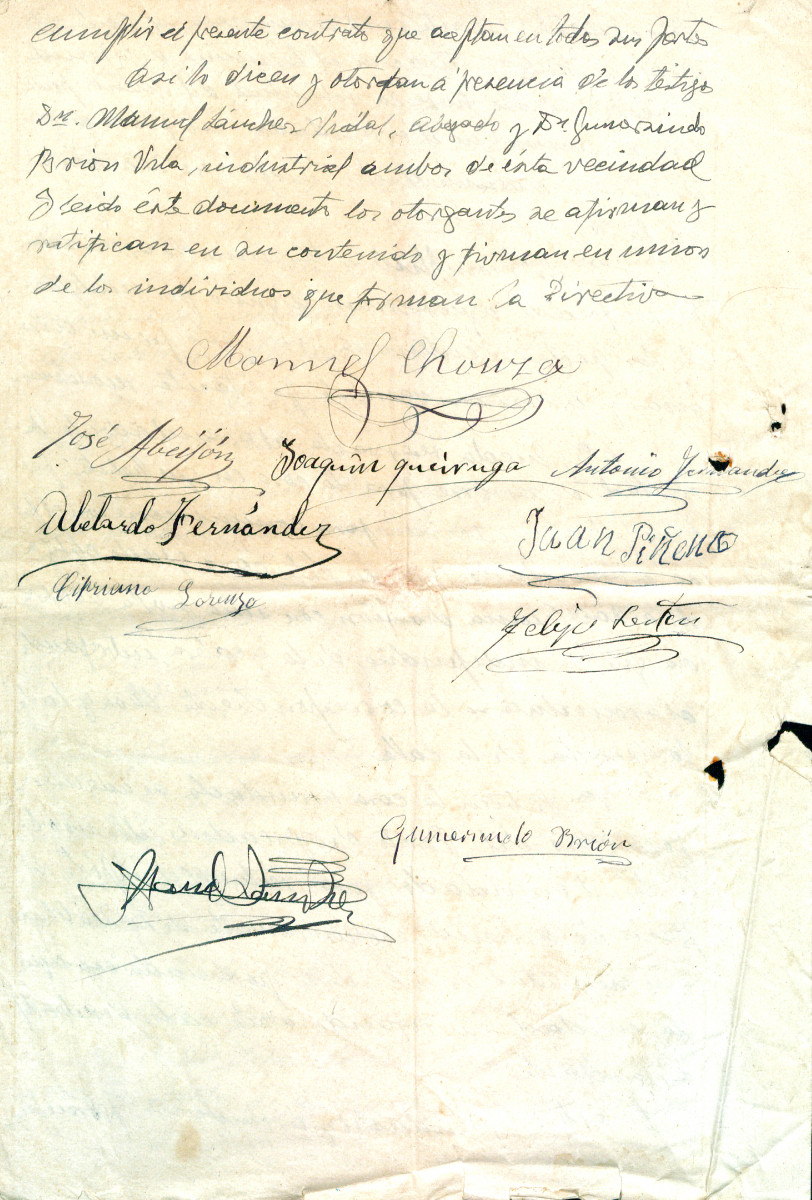 cumplir el presente contrato que aceptan en todas sus partes
Asi lo dicen y otorgan á presencia de los testigos
Dn. Manuel Sánchez Vidal, abogado y Dn. Gumersindo
Brión Vila, industrial ambos de ésta vecindad
Y leido éste documento los otorgantes se afirman y
ratifican en su contenido y firman en union
de los individuos que forman la Directiva
Manuel Chouza
José Abeijón Joaquín queiruga Antonio Fernandez
Abelardo Fernández Juan Piñeiro
Cipriano Lorenzo
Felipe
Gumersindo Brión
Manuel Sánchez